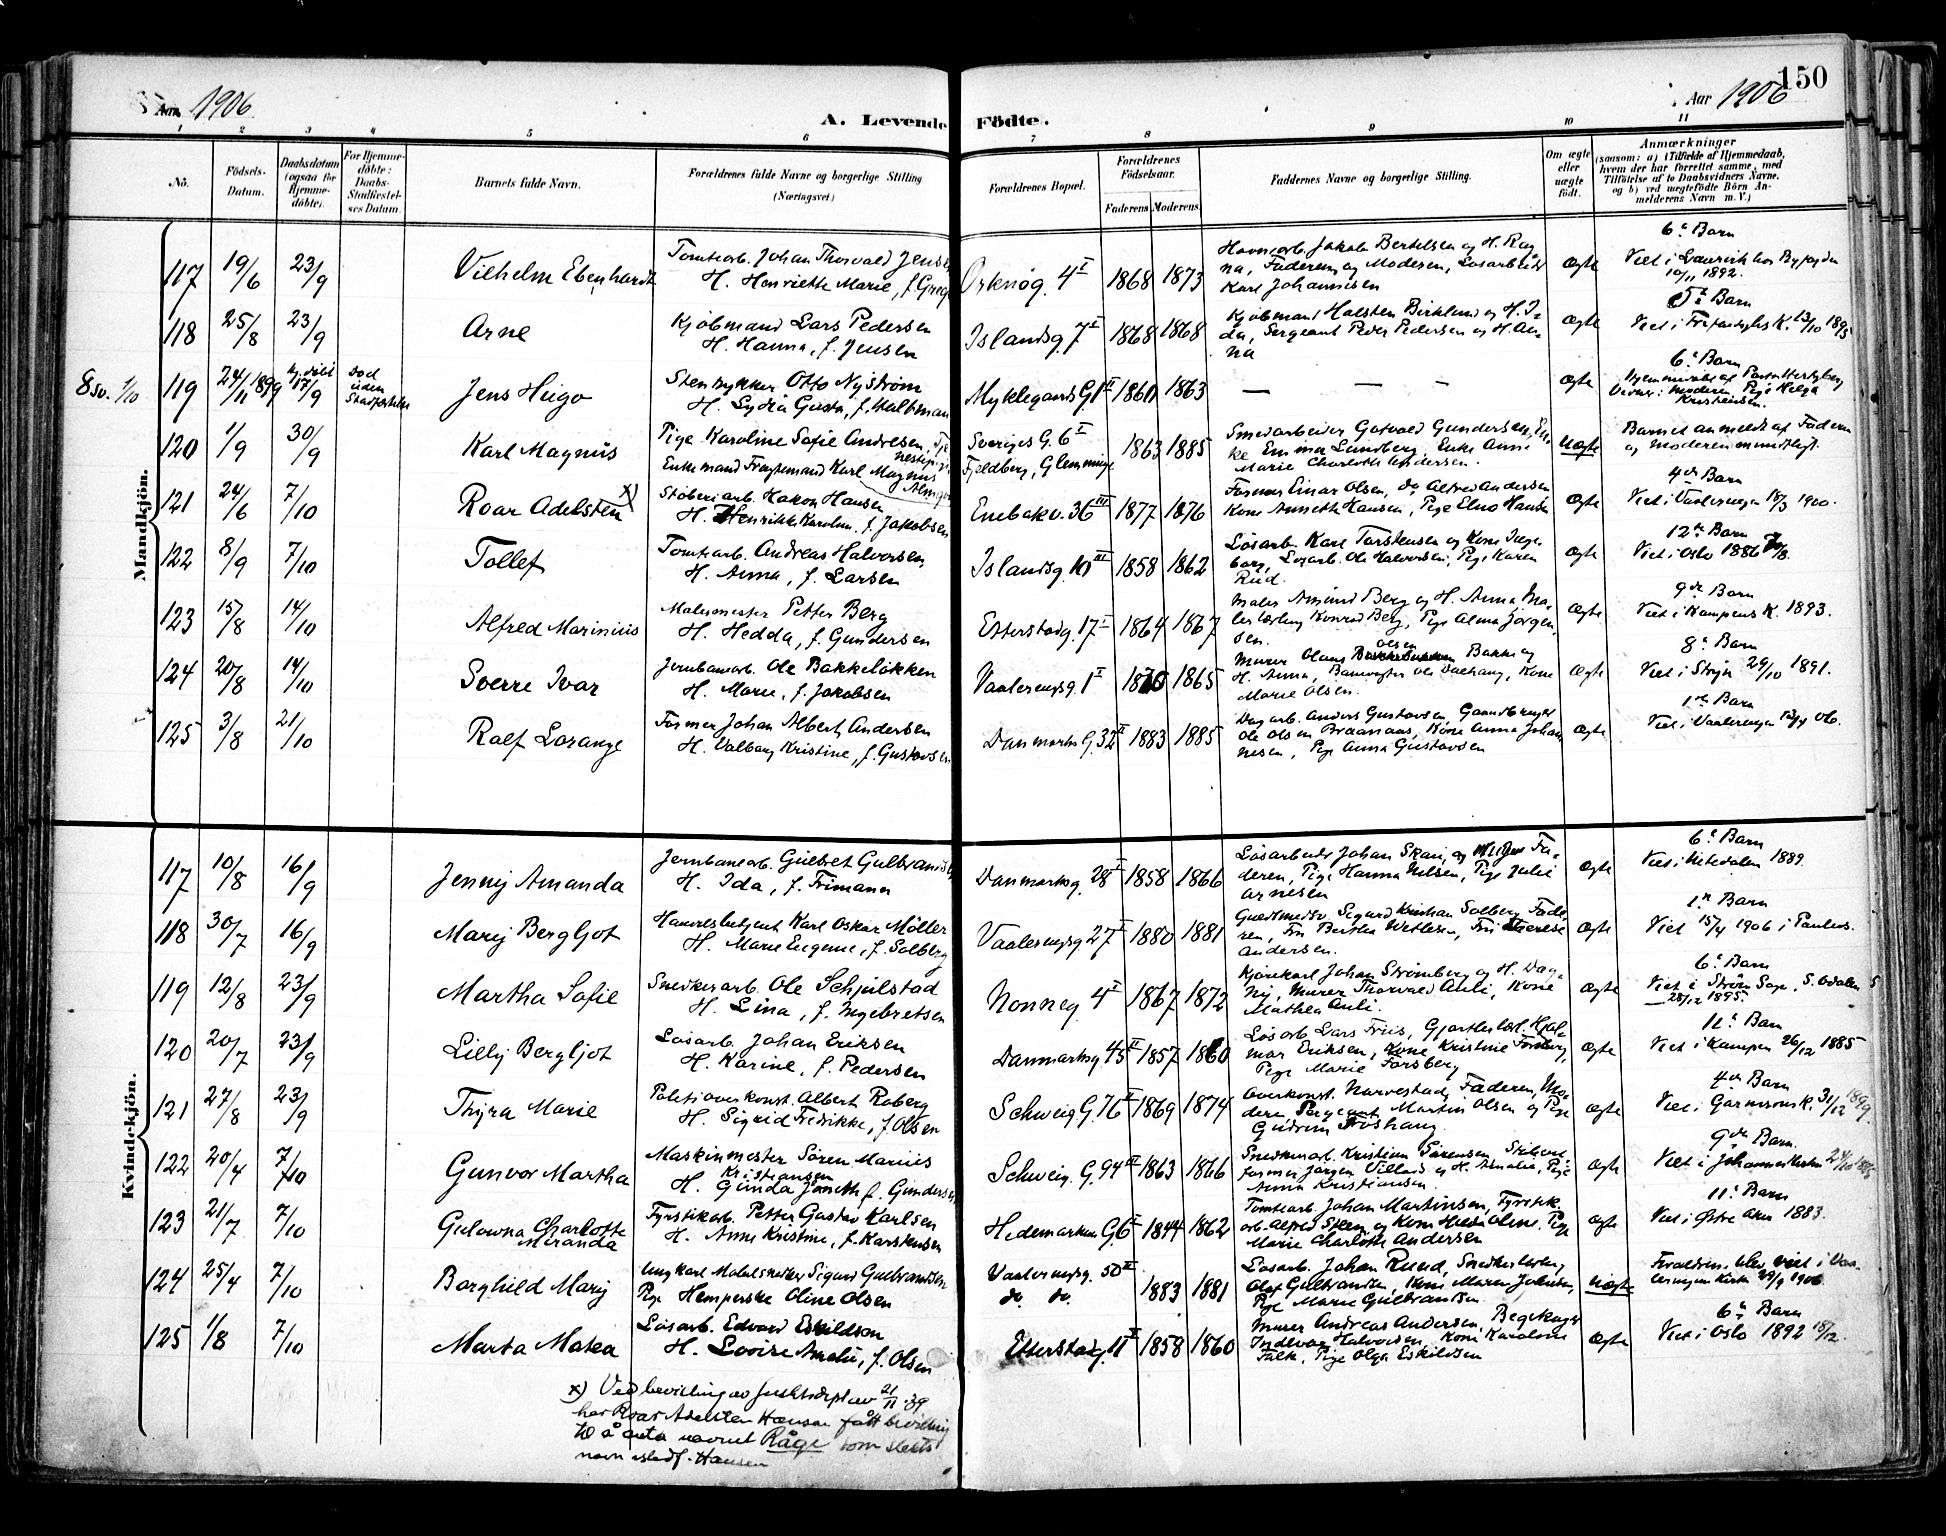 150
Aar 1906
A. Levende Födte.
Aar 1906
1 2 3 4 5 6 7 8 9 10 11
No.
Födsels-Datum.
Daabsdatum (ogsaa for Hjemme-döbte).
For Hjemme-döbte: Daabs-Stadfæstel-ses Datum.
Barnets fulde Navn.
Forældrenes fulde Navne og borgerlige Stilling (Næringsvei.)
Forældrenes Bopæl.
Forældrenes Födselsaar.
Faderens
Moderens
Faddernes Navne og borgerlige Stilling.
Om ægte eller uægte födt.
Anmærkninger
(saasom: a) i Tilfælde af Hjemmedaab, hvem der har forrettet samme, med Tilföielse af to Daabsvidners Navne, og b) ved uægtefödte Börn An-melderens Navn m. V.)
Mandkjön.
117 19/6 23/9 Vilhelm Ebenhardt
Tomtearb. Johan Thorvald Jensen
H. Henriette Marie, f. Greg
Orknøg. 4 I 1868 1873
Havnearb. Jakob Bertelsen og H. Rag
na, Faderen og Moderen, Løsarbeider
Karl Johannesen
ægte
6te Barn
Viet i Laurvik hos Byfogden
10/11 1892.
118 25/8 23/9 Arne
Kjøbmand Lars Pedersen
H. Hanna, f. Jensen
Islandsg. 7 I 1868 1868
Kjøbmand Halsten Birklund og H. I-
da, Sergeant Peder Pedersen og H. An-
na
ægte
5te Barn
Viet i Trefoldighs K. 13/10 1895
8 sv. 1/10
119 24/11 1899 hj. døbt 17/9
Død uden Stadfæstelse
Jens Hugo
Stentrykker Otto Nystrøm
H. Lydia Gusta, f. Halbman
Myklegaards G. 1 II 1860 1863
— — —
ægte
6te Barn
Hjemmedøbt af Pastor Hertzberg
Vidner: Moderen, Pige Helga
Kristensen.
120 1/9 30/9 Karl Magnus
Pige Karoline Sofie Andresen, Tje
nestepige
Enkemand Fragtemand Karl Magnus
Almgren
Sveriges G. 6 I
Fjeldberg, Glemminge
1863 1885
Smedarbeider Gotvald Gundersen, En-
ke Emma Lundberg, Enke Anne
Marie Charlotte Andersen.
uægte
Barnet anmeldt af Faderen
og Moderen mundtligt.
121 24/6 7/10 Roar Adelsten x)
Støberiarb. Hakon Hansen
H. Henrikke Karoline f. Jakobsen
Enebakv. 36 III 1877 1876
Former Einar Olsen, do Alfred Andersen
Kone Annette Hansen, Pige Elno Hansen
ægte
4de Barn
Viet i Vaalerengen 18/3 1900.
122 8/9 7/10 Tollef
Tomtearb. Andreas Halvorsen
H. Anna, f. Larsen
Islandsg. 10 III 1858 1862
Løsarb. Karl Torstensen og Kone Inge
borg, Løsarb. Ole Halvorsen, Pige Karen
Rud.
ægte
12te Barn
Viet i Oslo 1886
123 15/8 14/10 Alfred Marinius
Malermester Petter Berg
H. Hedda, f. Gundersen
Etterstadg. 17 I 1864 1867
Maler Amund Berg og H. Anna, Ma-
lerlærling Konrad Berg, Pige Alma Jørgen
sen.
ægte
9de Barn
Viet i Kampens K. 1893.
124 20/8 14/10 Sverre Ivar
Jernbanearb. Ole Bakkeløkken
H. Marie, f. Jakobsen
Vaalerengsg. 1 I 1865
Murer Olaus Olsen Bakke og
H. Anna, Banevogter Ole Dalhaug, Kone
Marie Olsen.
ægte
8de Barn
Viet i Strøm 29/10 1891.
125 3/8 21/10 Rolf Lorange
Former Johan Albert Andersen
H. Valborg Kristine, f. Gustavsen
Danmarks G. 32 II 1883 1885
Dagarb. Anders Gustavsen, Gaardbruger
Ole Olsen Braanaas, Kone Anna Johan
nesen, Pige Anna Gustavsen
ægte
1ste Barn
Viet i Vaalerengen 06.
Kvindekjön.
117 10/8 16/9 Jenny Amanda
Jernbanearb. Gulbret Gulbrandsen
H. Ida, f. Frimann
Danmarksg. 28 I 1858 1866
Løsarbeider Johan Skari, og Fa-
deren, Pige Hanna Nilsen, Pige Julie
Arnesen
ægte
6te Barn
Viet i Nitedalen 1889.
118 30/7 16/9 Mary Bergljot
Handelsbetjent Karl Oskar Møller
H. Marie Eugenie, f. Solberg
Vaalerengsg 27 I 1880 1881
Guldsmedsv. Sigurd Kristian Solberg, Fade-
ren, Fru Bertha Wetlesen, Fru Therese
Andersen.
ægte
1ste Barn
Viet 15/4 1906 i Paulus.
119 12/8 23/9 Martha Sofie
Snedkerarb. Ole Schjulstad
H. Lina, f. Ingebretsen
Nonneg. 4 I 1867 1872
Kjørekarl Johan Strømberg og H. Dag-
ny, Murer Thorvald Auli, Kone
Mathea Auli.
ægte
6te Barn
Viet i Strøm Sogn, S. Odalen
28/12 1895.
120 20/7 23/9 Lilly Bergljot
Løsarb. Johan Eriksen
H. Karine, f. Pedersen
Danmarksg. 45 II 1857 1860
Løsarb. Lars Friis, Gjørtlerlærl. Hjal-
mar Eriksen, Kone Kristine Forsberg,
Pige Marie Forsberg
ægte
11te Barn
Viet i Kampen 26/12 1885
121 27/8 23/9 Thyra Marie
Politioverkonst. Albert Roberg
H. Sigrid Fredrikke, f. Olsen
Schweig. G. 76 II 1869 1874
Overkonst. Narvestad, Faderen, Mo-
deren Sergeant Martin Olsen og Pige
Gudrun Foshaug.
ægte
4de Barn
Viet i Garnisons K. 31/12 1899.
122 20/4 7/10 Gunvor Martha
Maskinmester Søren Marius
Kristiansen
H. Gunda Janette f. Gundersen
Schweig. G. 94 II 1863 1866
Snedkerarb. Kristian Sørensen,
former Jørgen Villard og H. Amalie, Pige
Anna Kristiansen.
ægte
9de Barn.
Viet i Johanneskirken
123 21/7 7/10 Gulowna Charlotte
Miranda
Fyrstikarb. Petter Gustav Karlsen
H. Anne Kristine, f. Karstensen
Hedemarkens G. 6 I 1844 1862
Tomtearb. Johan Martinsen, Fyrstik-
arb. Alfred Steen og Kone Hilda Oline, Pige
Marie Charlotte Andersen
ægte
11te Barn
Viet i Østre Aker 1883.
124 25/4 7/10 Borghild Mary
Ungkarl Møbelsnedker Sigurd Gulbrandsen
Pige Hemperske Oline Olsen
Vaalerengsg. 50 II
do. do.
1883 1881
Løsarb. Johan Ruud, Snedkerlærling
Olaf Gulbrandsen, Kone Maren Johnsen,
Pige Marie Gulbrandsen
uægte
Forældrene blev viet i Vaa-
lerengens Kirke 29/9 1906
125 1/8 7/10 Marta Matea
Løsarb. Edvard Eskildson
H. Lovise Amalie, f. Olsen
Etterstadg. 11 I 1858 1860
Murer Andreas Andersen, Begtkoger
Indlevar Halvorsen, Kone Karoline
Falk, Pige Olga Eskildsen
ægte
6te Barn
Viet i Oslo 1892 18/12.
x) Ved bevilling av Justisdept av 21/11 39
har Roar Adelsten Hansen fått bevilling
til å anta navnet Råge som slekts
navn istedf. Hansen